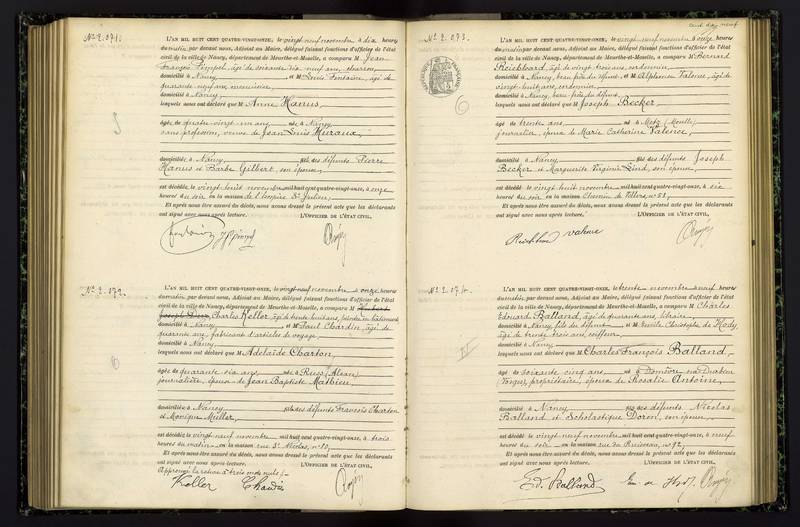 No 2.071.
L'AN MIL HUIT CENT QUATRE-VINGT-ONZE, le vingt neuf novembre à dix heures
du matin par devant nous, Adjoint au Maire, délégué faisant fonctions d'officier de l'état
civil de la ville de Nancy, département de Meurthe-et-Moselle, a comparu M Jean
François âgé de soixante dix neuf ans,
domicilié à Nancy et M Louis Fontaine, âgé de
quarante neuf ans, menuisier,
domicilié à Nancy,
lesquels nous ont déclaré que M Anne Hanus,
âgée de quatre-vingt un ans née à Nancy
sans profession, veuve de Jean Louis Muraux,
domiciliée à Nancy, fille des défunts Pierre
Hanus et Barbe Gilbert, son épouse,
est décédée, le vingt huit novembre mil huit cent quatre-vingt-onze, à onze
heures du soir en la maison de l'hospice St Julien,
Et après nous être assuré du décès, nous avons dressé le présent acte que les déclarants
ont signé avec nous après lecture. L'OFFICIER DE L'ÉTAT CIVIL,
Fontaine
No 2.072.
L'AN MIL HUIT CENT QUATRE-VINGT-ONZE, le vingt neuf novembre à onze heures
du matin, par devant nous, Adjoint au Maire, délégué faisant fonctions d'officier de l'état
civil de la ville de Nancy, département de Meurthe-et-Moselle, a comparu M
Charles Keller, âgé de trente huit ans, peintre en bâtiments
domicilié à Nancy et M Paul Chardin, âgé de
quarante ans, fabricant d'articles de voyage
domicilié à Nancy
lesquels nous ont déclaré que M Adelaïde Charton,
âgée de quarante six ans née à Russ (Alsace)
journalière, épouse de Jean Baptiste Mathieu,
domiciliée à Nancy fille des défunts François Charton
et Monique Müller,
est décédée le vingt neuf novembre mil huit cent quatre-vingt-onze, à trois
heures du matin en la maison rue St Nicolas, no 10,
Et après nous être assuré du décès, nous avons dressé le présent acte que les déclarants
ont signé avec nous après lecture. L'OFFICIER DE L'ÉTAT CIVIL,
Approuvé la rature de trois mots nuls
Keller Chardin
cent dix neuf
No 2.073.
L'AN MIL HUIT CENT QUATRE-VINGT-ONZE, le vingt neuf novembre à onze heures
du matin par devant nous, Adjoint au Maire, délégué faisant fonctions d'officier de l'état
civil de la ville de Nancy, département de Meurthe-et-Moselle, a comparu M Bernard
Reichhard, âgé de vingt trois ans, cordonnier,
domicilié à Nancy, beau frère du défunt et M Alphonse Valence, âgé de
vingt huit ans, cordonnier,
domicilié à Nancy, beau frère du défunt
lesquels nous ont déclaré que M Joseph Becker,
âgé de trente ans né à Metz (Moselle)
journalier, époux de Marie Catherine Valence,
domicilié à Nancy fils des défunts Joseph
Becker et Marguerite Virginie Lind, son épouse,
est décédé le vingt huit novembre mil huit cent quatre-vingt-onze, à six
heures du soir en la maison Chemin de Villers, no 21,
Et après nous être assuré du décès, nous avons dressé le présent acte que les déclarants
ont signé avec nous après lecture. L'OFFICIER DE L'ÉTAT CIVIL,
No 2.074.
L'AN MIL HUIT CENT QUATRE-VINGT-ONZE, le trente novembre à neuf heures
du matin, par devant nous, Adjoint au Maire, délégué faisant fonctions d'officier de l'état
civil de la ville de Nancy, département de Meurthe-et-Moselle, a comparu M Charles
Edouard Balland, âgé de quarante ans, libraire,
domicilié à Nancy, fils du défunt et M Emile Christophe de Hody
âgé de trente trois ans, coiffeur,
domicilié à Nancy
lesquels nous ont déclaré que M Charles François Balland,
âgé de soixante cinq ans né à
(Vosges), propriétaire, époux de Rosalie Antoine,
domicilié à Nancy fils des défunts Nicolas
Balland et Scholastique Doron, son épouse,
est décédé le vingt neuf novembre mil huit cent quatre-vingt-onze, à neuf
heures du soir en la maison rue du Ruisseau, no 12,
Et après nous être assuré du décès, nous avons dressé le présent acte que les déclarants
ont signé avec nous après lecture. L'OFFICIER DE L'ÉTAT CIVIL,
Ed. Balland